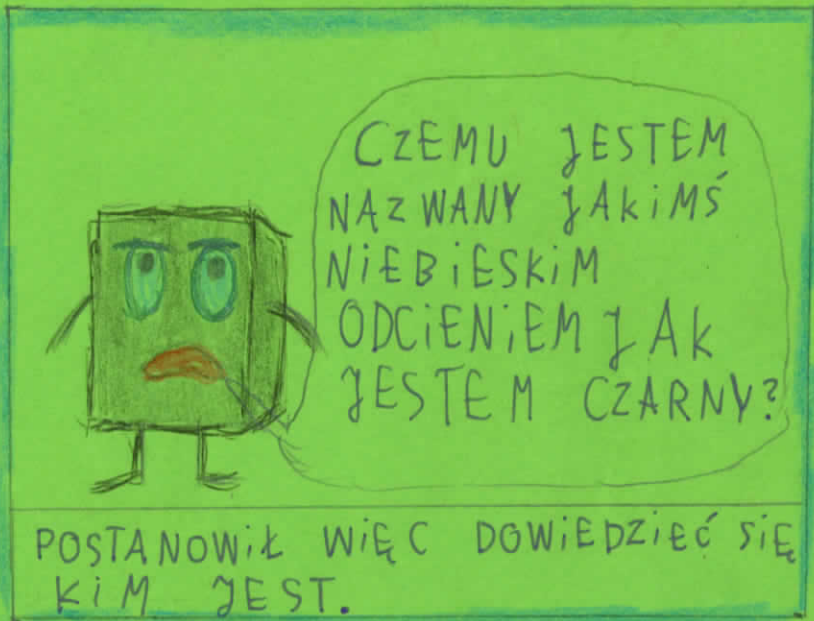 CZEMU JESTEM
NAZWANY JAKIMŚ
NIEBIESKIM
ODCIENIEM JAK
JESTEM CZARNY?
POSTANOWIŁ WIĘC DOWIEDZIEĆ SIĘ
KIM JEST.